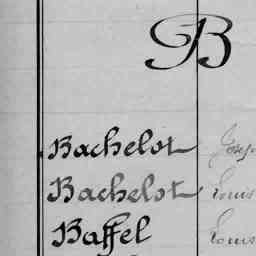 B
Bachelot Josep
Bachelot Louis
Baffel Louis